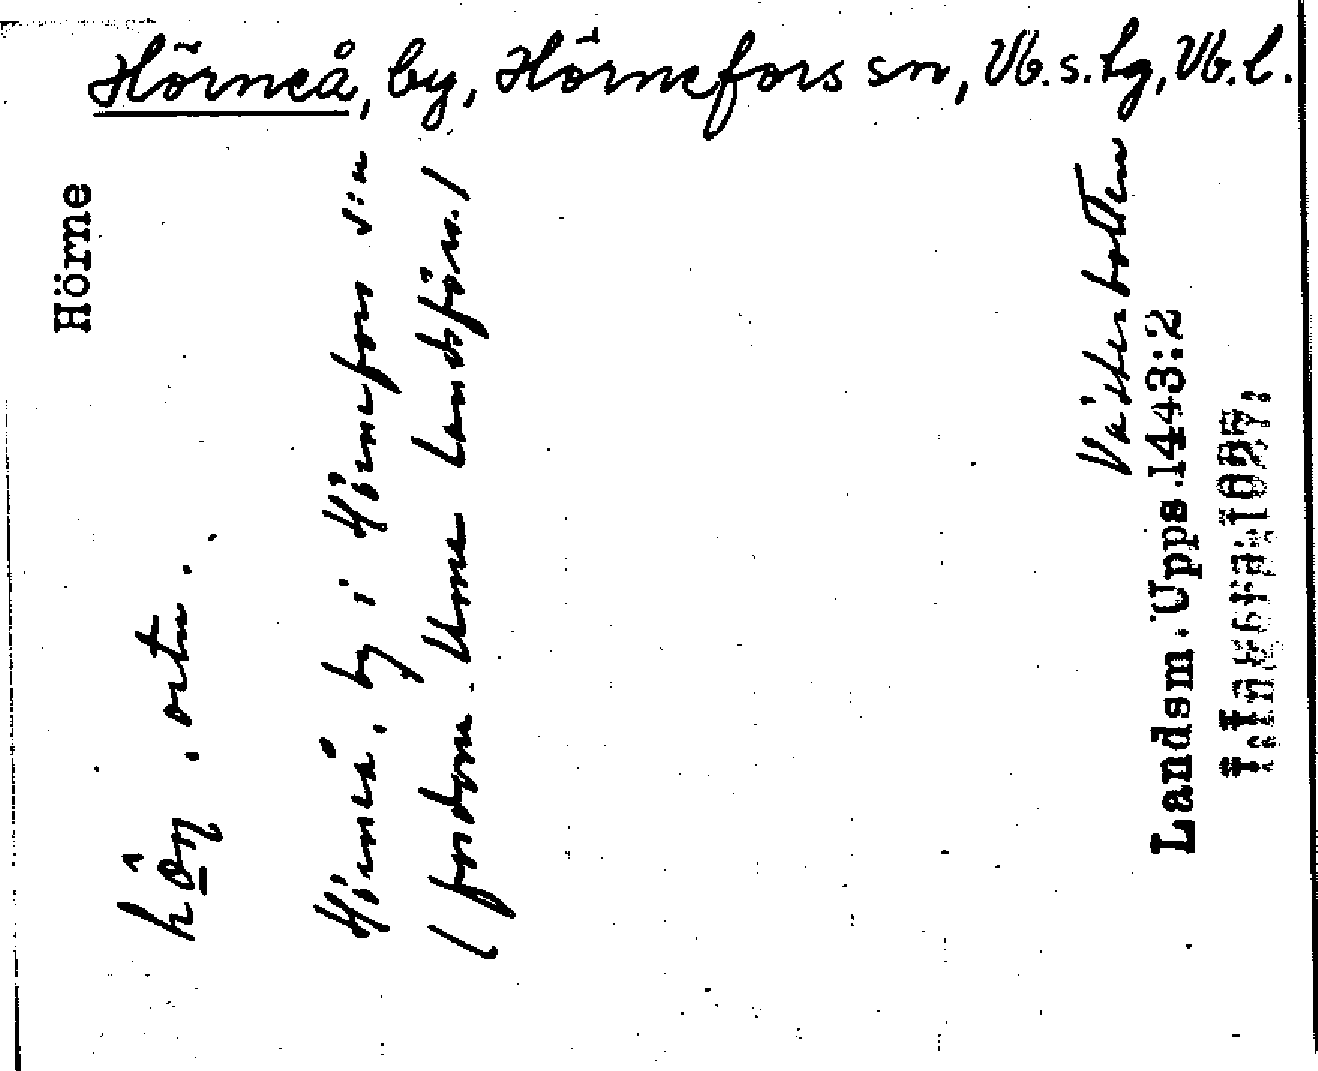 Hörneå, by, Hörnefors sn, Vb.s.lg, Vb.l.
Hörne
ortn.
Hörneå, by i Hörnefors s:n
(fordom. Ume landsförs.)
Västerbotten
Landsm. Upps. 1443:2